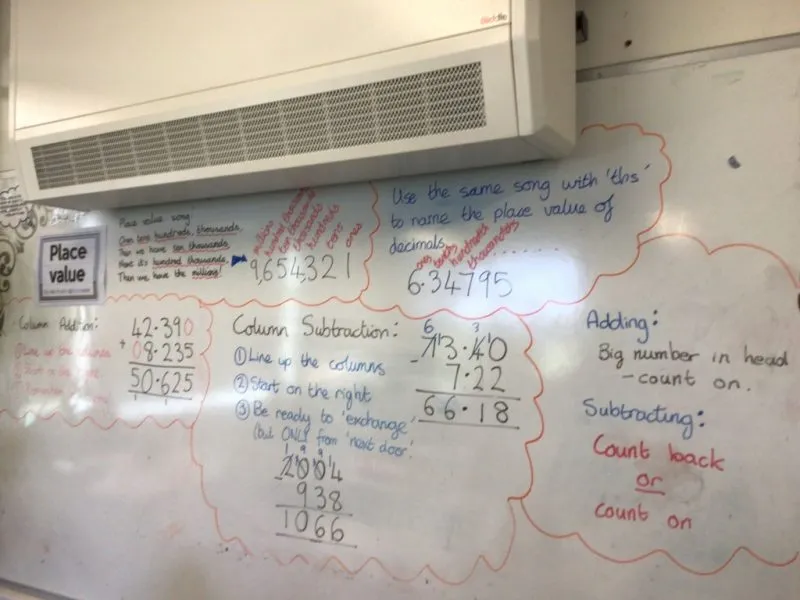 Place value
Place value song
Ones, tens, hundreds, thousands,
Then we have ten thousands,
Next it's hundred thousands,
Then we have the millions!
millions
hundred thousands
ten thousands
thousands
hundreds
tens
ones
9,654,321
Use the same song with 'ths'
to name the place value of
decimals.......
ones
tenths
hundredths
thousandths
6.34795
Column Addition:
① Line up the columns
42.390
+ 08.235
50.625
1 1
Column Subtraction:
① Line up the columns
② Start on the right
③ Be ready to 'exchange'
(but ONLY from 'next door'.
6 3
7 13.4 10
- 7.22
66.18
1 9 9
2 10 10 14
- 938
1066
Adding:
Big number in head
- count on.
Subtracting:
Count back
or
Count on